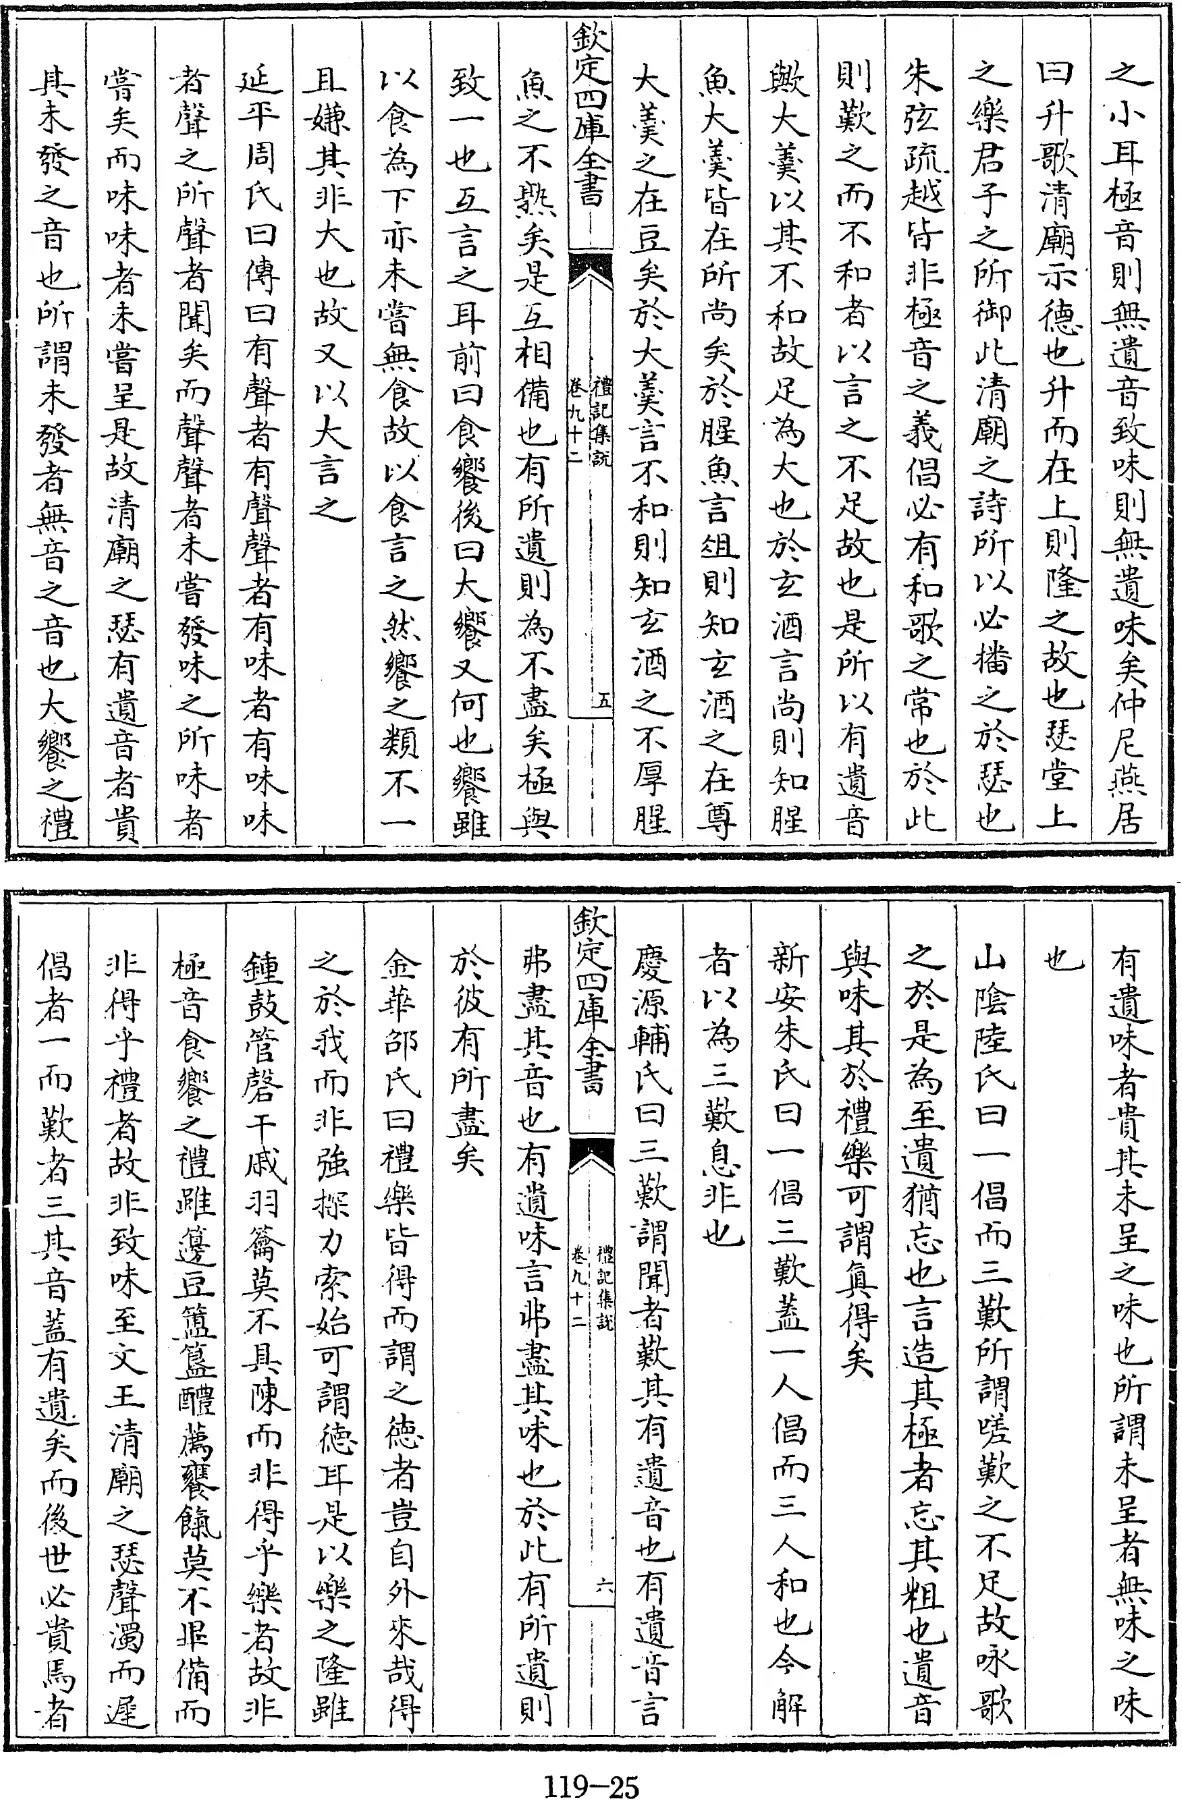 之小耳極音則無遺音致味則無遺味矣仲尼燕居
曰升歌清廟示德也升而在上則隆之故也瑟堂上
之樂君子之所御此清廟之詩所以必播之於瑟也
朱弦疏越皆非極音之義倡必有和歌之常也於此
則歎之而不和者以言之不足故也是所以有遺音
歟大羹以其不和故足為大也於玄酒言尚則知腥
魚大羹皆在所尚矣於腥魚言俎則知玄酒之在尊
大羹之在豆矣於大羹言不和則知玄酒之不厚腥
欽定四庫全書
禮記集說
卷九十二
五
魚之不熟矣是互相備也有所遺則為不盡矣極與
致一也互言之耳前曰食饗後曰大饗又何也饗雖
以食為下亦未嘗無食故以食言之然饗之類不一
且嫌其非大也故又以大言之
延平周氏曰傳曰有聲者有聲聲者有味者有味味
者聲之所聲者聞矣而聲聲者未嘗發味之所味者
嘗矣而味味者未嘗呈是故清廟之瑟有遺音者貴
其未發之音也所謂未發者無音之音也大饗之禮
有遺味者貴其未呈之味也所謂未呈者無味之味
也
山陰陸氏曰一倡而三歎所謂嗟歎之不足故咏歌
之於是為至遺猶忘也言造其極者忘其粗也遺音
與味其於禮樂可謂真得矣
新安朱氏曰一倡三歎蓋一人倡而三人和也今解
者以為三歎息非也
慶源輔氏曰三歎謂聞者歎其有遺音也有遺音言
欽定四庫全書
禮記集說
卷九十二
六
弗盡其音也有遺味言弗盡其味也於此有所遺則
於彼有所盡矣
金華邵氏曰禮樂皆得而謂之德者豈自外來哉得
之於我而非強探力索始可謂德耳是以樂之隆雖
鍾鼓管磬干戚羽籥莫不具陳而非得乎樂者故非
極音食饗之禮雖籩豆簠簋醴薦饔餼莫不畢備而
非得乎禮者故非致味至文王清廟之瑟聲濁而遲
倡者一而歎者三其音蓋有遺矣而後世必貴焉者
119-25